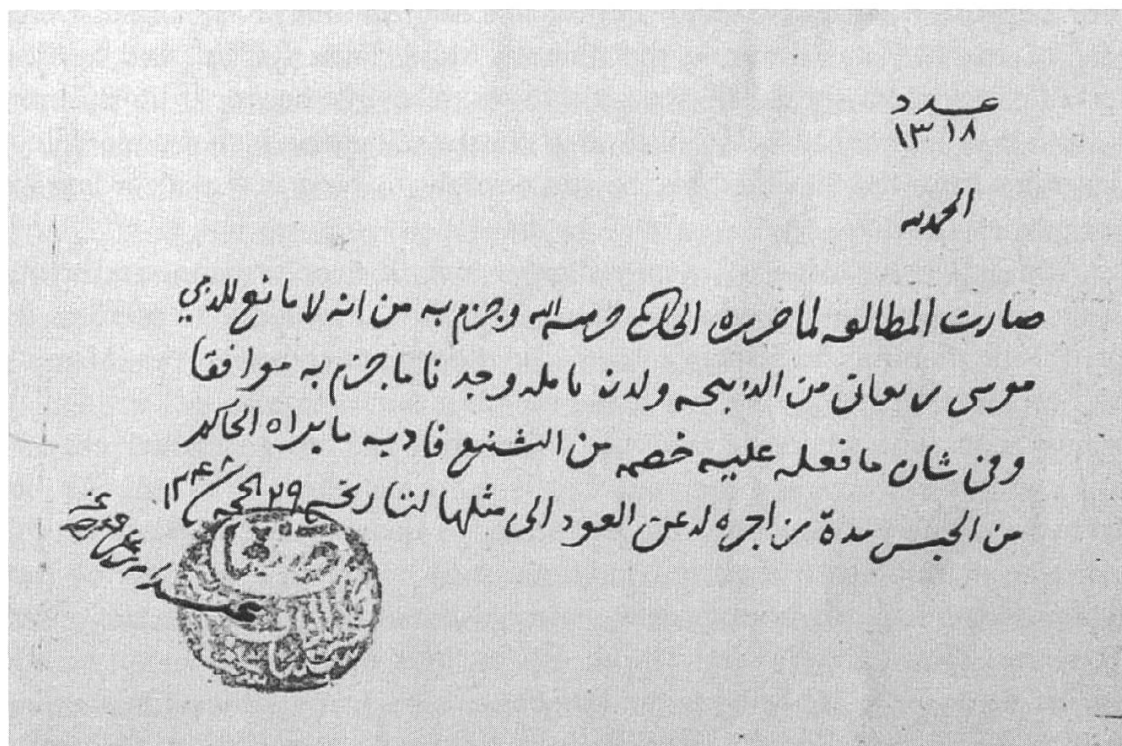 عدد
١٣١٨
الحمد لله
صارت المطالعه لما حرره الحاكم حرسه الله وجزم به من انه لا مانع للذمي
موسى من الذبيحه ولدى تامله وجدنا ما جزم به موافقا
وفي شان ما فعله عليه خصمه من الشنيع فادبه ما يراه الحاكم
من الحبس مدة زاجرة له عن العود الى مثلها لتاريخه ٢٩ الحجه ١٣٤٨